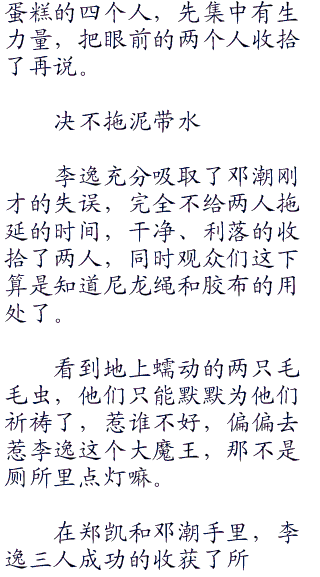 蛋糕的四个人，先集中有生
力量，把眼前的两个人收拾
了再说。
决不拖泥带水
李逸充分吸取了邓潮刚
才的失误，完全不给两人拖
延的时间，干净、利落的收
拾了两人，同时观众们这下
算是知道尼龙绳和胶布的用
处了。
看到地上蠕动的两只毛
毛虫，他们只能默默为他们
祈祷了，惹谁不好，偏偏去
惹李逸这个大魔王，那不是
厕所里点灯嘛。
在郑凯和邓潮手里，李
逸三人成功的收获了所